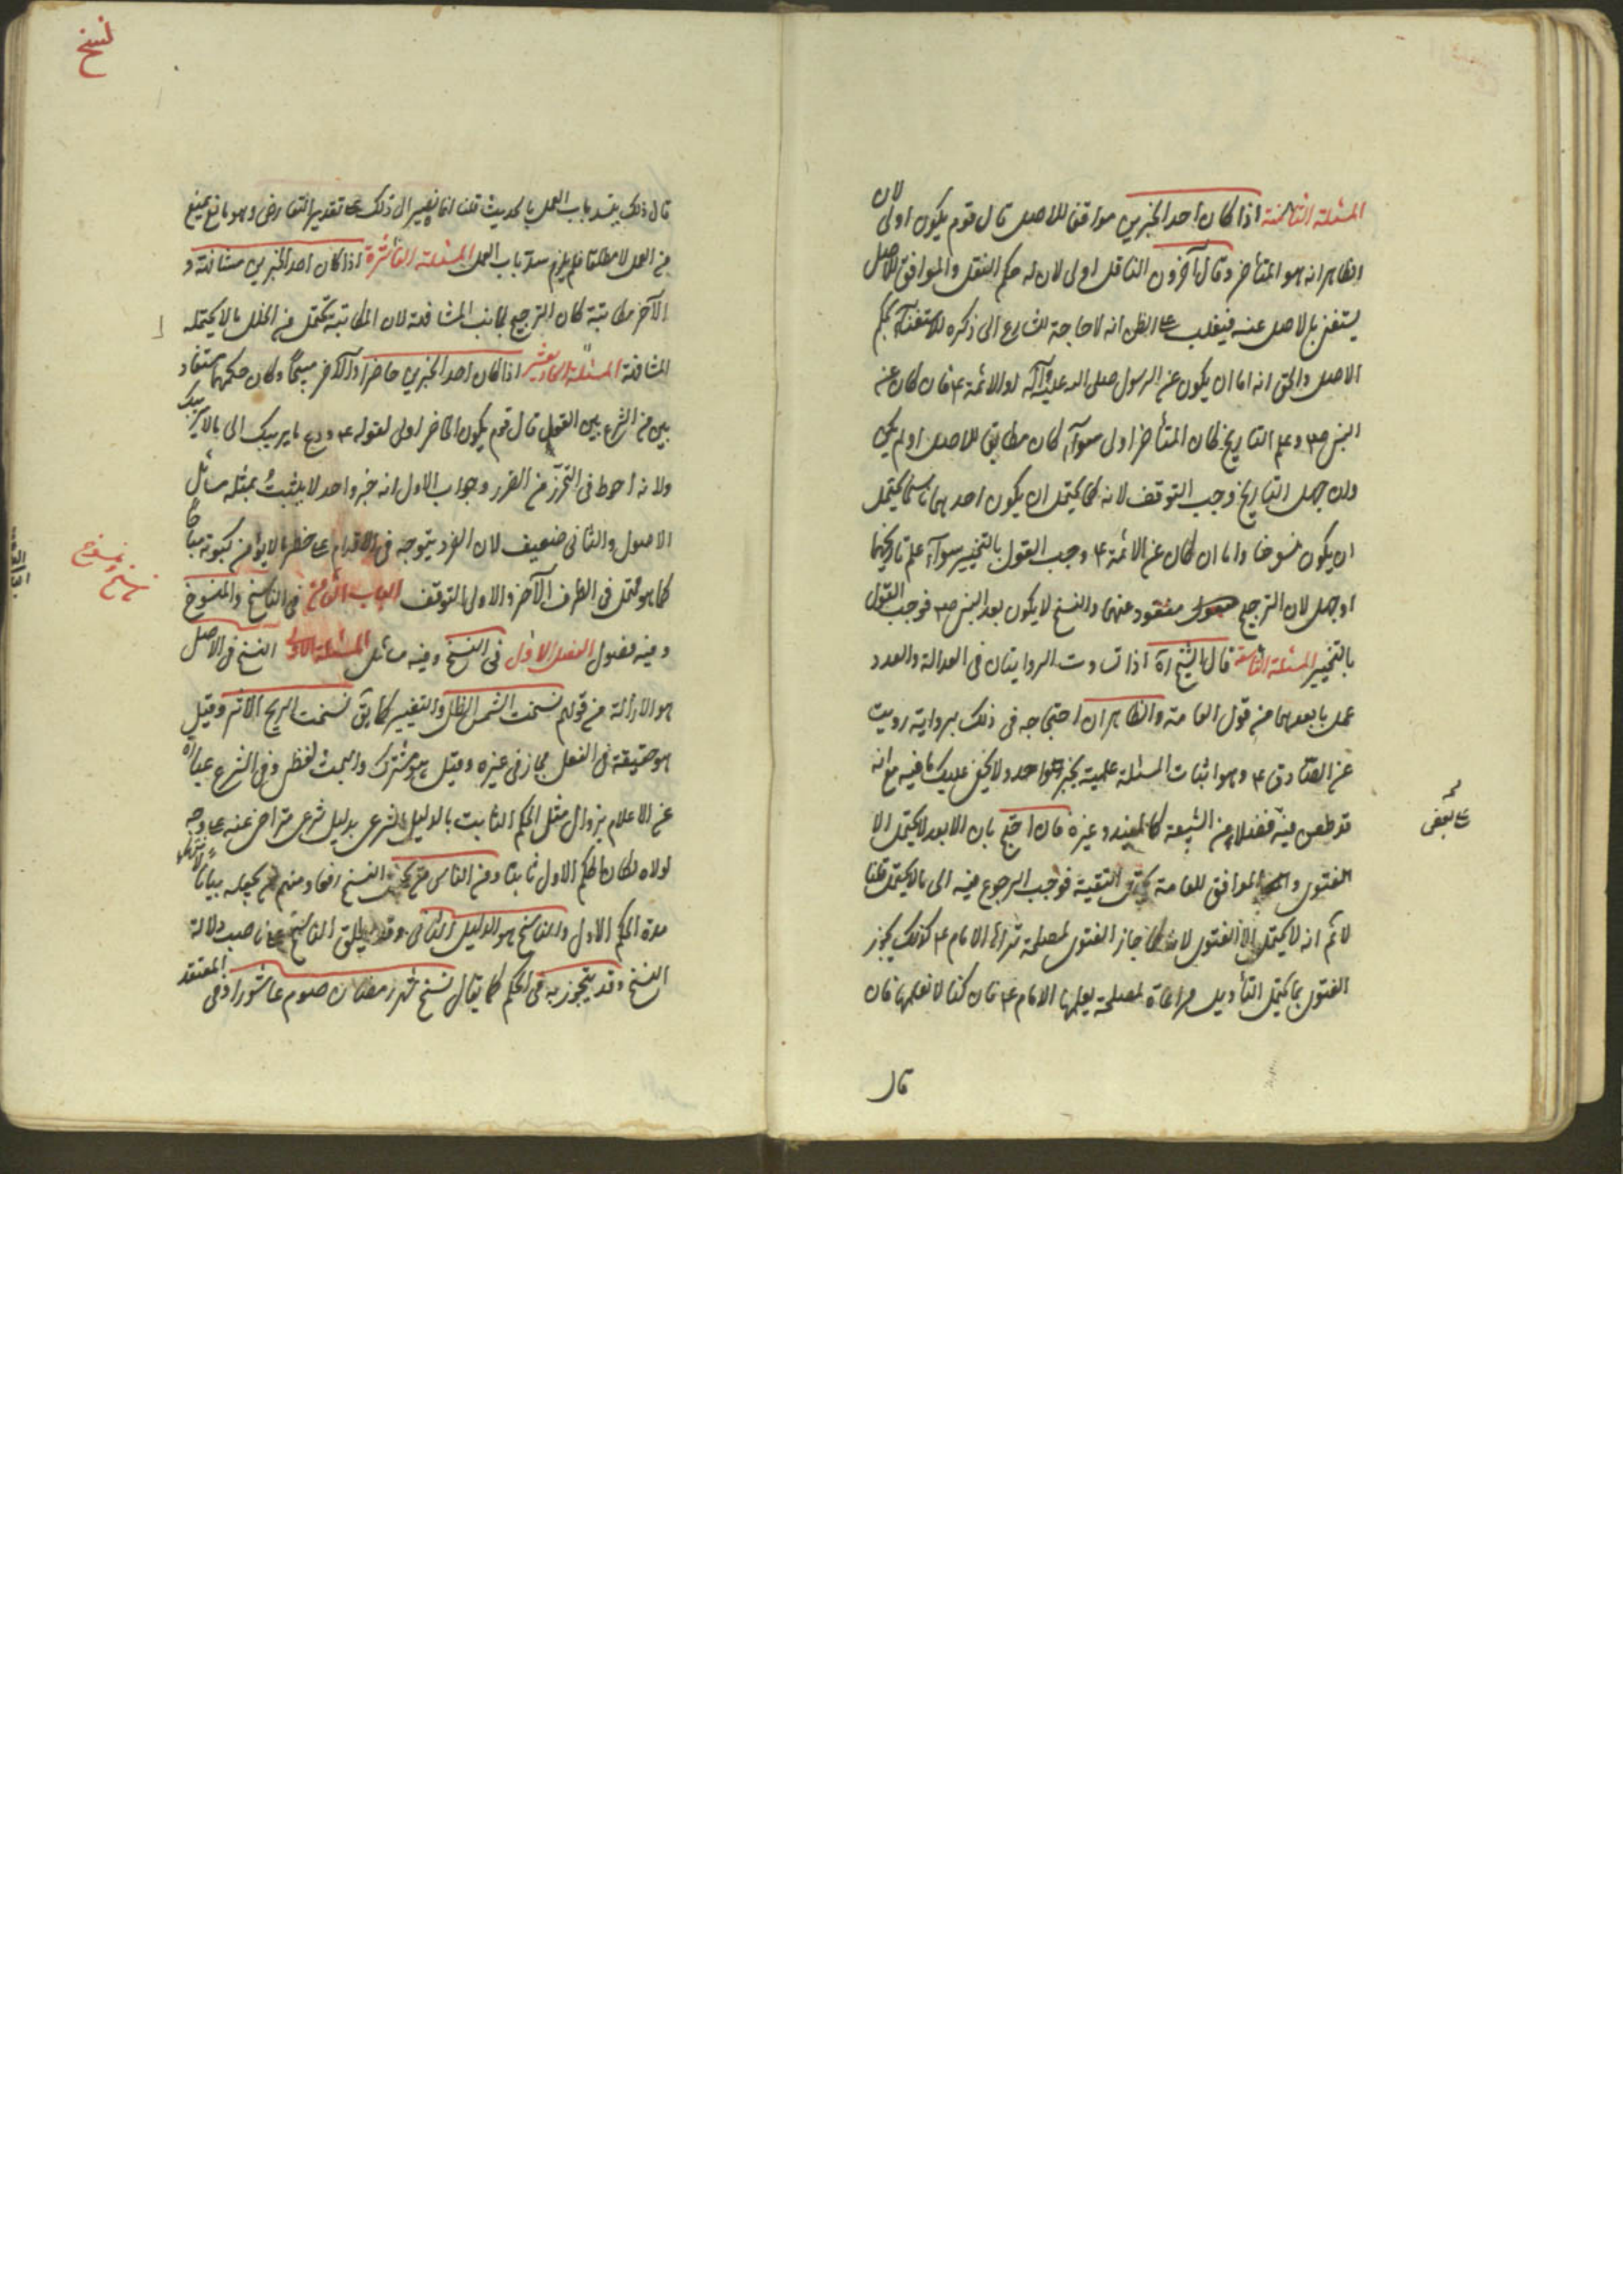 المسئلة الثامنة اذا كان احد الخبرين موافقا للاصل قال قوم يكون اولى لان
الظاهر انه هو المتأخر وقال آخرون الناقل اولى لان له حكم النقل والموافق للاصل
يستغنى بالاصل عنه فيغلب على الظن انه لا حاجة للشارع الى ذكره للاستغناء بحكم
الاصل والحق انه اما ان يكون عن الرسول صلى الله عليه وآله او الائمة ع فان كان عن
النبي ص وعلم التاريخ كان المتأخر اولى سوآء كان مطابق للاصل او لم يكن
وان جهل التاريخ وجب التوقف لانه كما يحتمل ان يكون احدهما ناسخا يحتمل
ان يكون منسوخا واما ان كان عن الائمة ع وجب القول بالتخيير سوآء علم تاريخهما
او جهل لان الترجيح مفقود عنهما والنسخ لا يكون بعد النبي ص فوجب القول
بالتخيير المسئلة التاسعة قال الشيخ ره اذا تساوت الروايتان فى العدالة والعدد
عمل بابعدهما من قول العامة والظاهر ان احتجاجه فى ذلك برواية رويت
عن الصادق ع وهو اثبات المسئلة علمية بخبر واحد ولا يخفى عليك ما فيه مع انه
قد طعن فيه فضلاء من الشيعة كالمفيد وغيره فان احتج بان الابعد لا يحتمل الا
الفتوى والموافق للعامة يحتمل التقية فوجب الرجوع فيه الى ما لا يحتمل قلنا
لا نم انه لا يحتمل الا الفتوى لانه كما جاز الفتوى لمصلحة تراها الامام ع كذلك يجوز
الفتوى بما يحتمل التأويل مراعاة لمصلحة يعلمها الامام ع فان كنا لا نعلمها فان
على بعض
قال
نسخ
قال ذلك يسد باب العمل بالحديث قلنا انما نصير الى ذلك على تقدير التعارض وهو مانع يمنع
من العمل لا مطلقا فلم يلزم سد باب العمل المسئلة العاشرة اذا كان احد الخبرين مشافهة و
الآخر مكاتبة كان الترجيح لجانب المشافهة لان المكاتبة يحتمل من الخلل ما لا يحتمله
المشافهة المسئلة الحاديعشر اذا كان احد الخبرين حاضرا والآخر مبيحا وكان حكمهما مستفاد
بين من الشرع بين القول قال قوم يكون الحاضر اولى لقوله ع دع ما يريبك الى ما لا يريبك
ولانه احوط فى التحرز من الضرر وجواب الاول انه خبر واحد لا يثبت بمثله مسائل
الاصول والثانى ضعيف لان الضرر يتوجه فى الاقدام على حظر ما لا يؤمن كونه مباحا
كما هو محتمل فى الطرف الآخر والاولى التوقف الباب الثامن فى الناسخ والمنسوخ
وفيه فصول الفصل الاول فى النسخ وفيه مسائل المسئلة الاولى النسخ فى الاصل
هو الازالة من قولهم نسخت الشمس الظل والتغيير كما يق نسخت الريح الاثر وقيل
هو حقيقة فى النقل مجاز فى غيره وقيل هو مشترك والبحث لفظى وفى الشرع عبارة
عن الاعلام بزوال مثل الحكم الثابت بالدليل الشرعى بدليل شرعى متراخ عنه على وجه
لولاه لكان الحكم الاول ثابتا ومن الناس من يجعل النسخ رفعا ومنهم من يجعله بيانا لانتهاء
مدة الحكم الاول والناسخ هو الدليل الثانى وقد يطلق الناسخ على ناصب دلالة
النسخ وقد يتجوز به فى الحكم كما يقال نسخ شهر رمضان صوم عاشورا وفى المعتقد